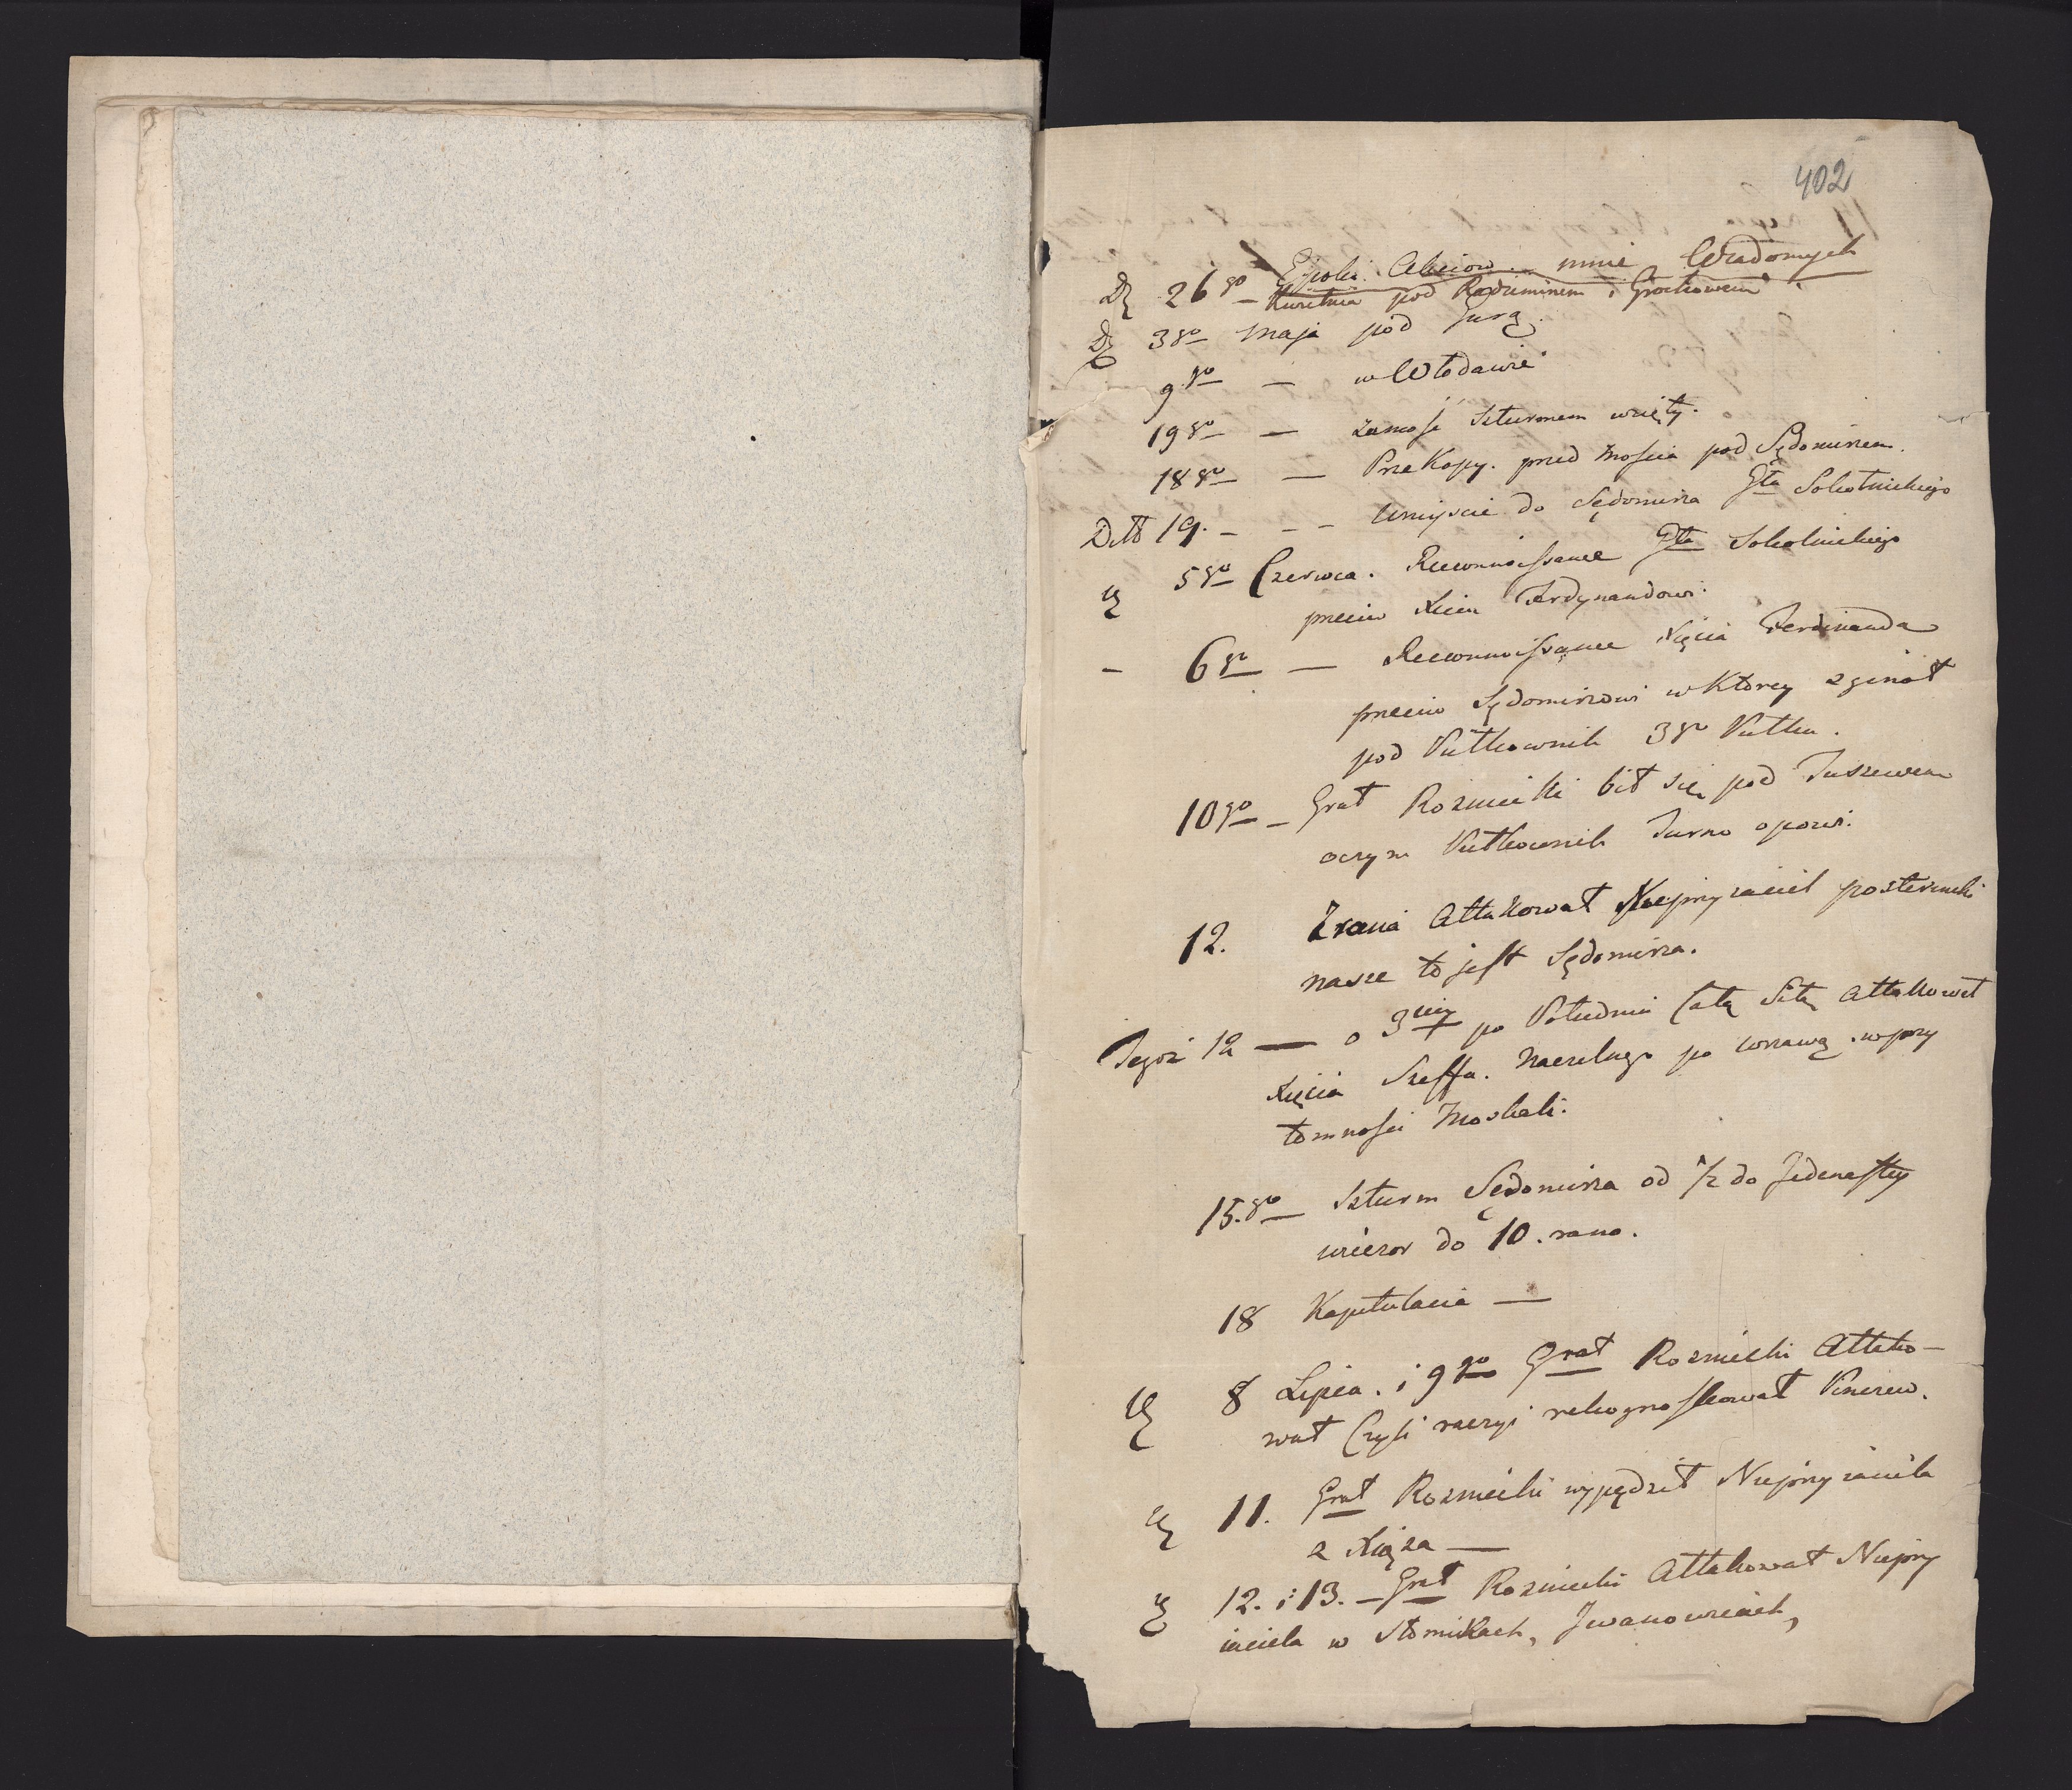 402
Epoki Akciow mnie Wiadomych
D. 26go – Kwietnia pod Radziminem i Grochowem
D. 3go Maja pod Gurą.
9go — w Włodawie
19go — Zamość Szturmem wzięty.
18go — Przekopy przed Mostem pod Sędomirzem.
Ditto 19. – – – Wniyscie do Sędomirza Gła Sokolnickiego
5go Czerwca. Reconnoissance Gła Sokolnickiego
przeciw Xciu Ferdynandowi.
– 6go — Reconnoissance Xięcia Ferdinanda
przeciw Sędomirzowi w Ktorey zginął
pod Pułkownik 3go Pułku.
10go – Grał Rozniecki bił się pod Juszewem
oczym Pułkownik Turno opowi.
12. Zrana Attakował Nieprzyiaciel posterunki
nasze to jest Sędomirza.
Tegoż 12 — o 3ciey po Południu całą Siłą Attakował
Xięcia Szeffa Naczelnego po Wrzawą w przy
tomności Moskali.
15.go Szturm Sędomirza od ½ do Jedenastey
wieczor do 10. rano.
18 Kapitulacia —
8 Lipca. i 9go Grał Rozniecki Attako-
wał Czyli raczyi rekognoskował Pinczow.
11. Grał Rozniecki wypędził Nieprzyiaciela
z Xiąża —
12. i 13. – Grał Rozniecki Attakował Nieprzy
iaciela w Słomikach, Jwanowicach,